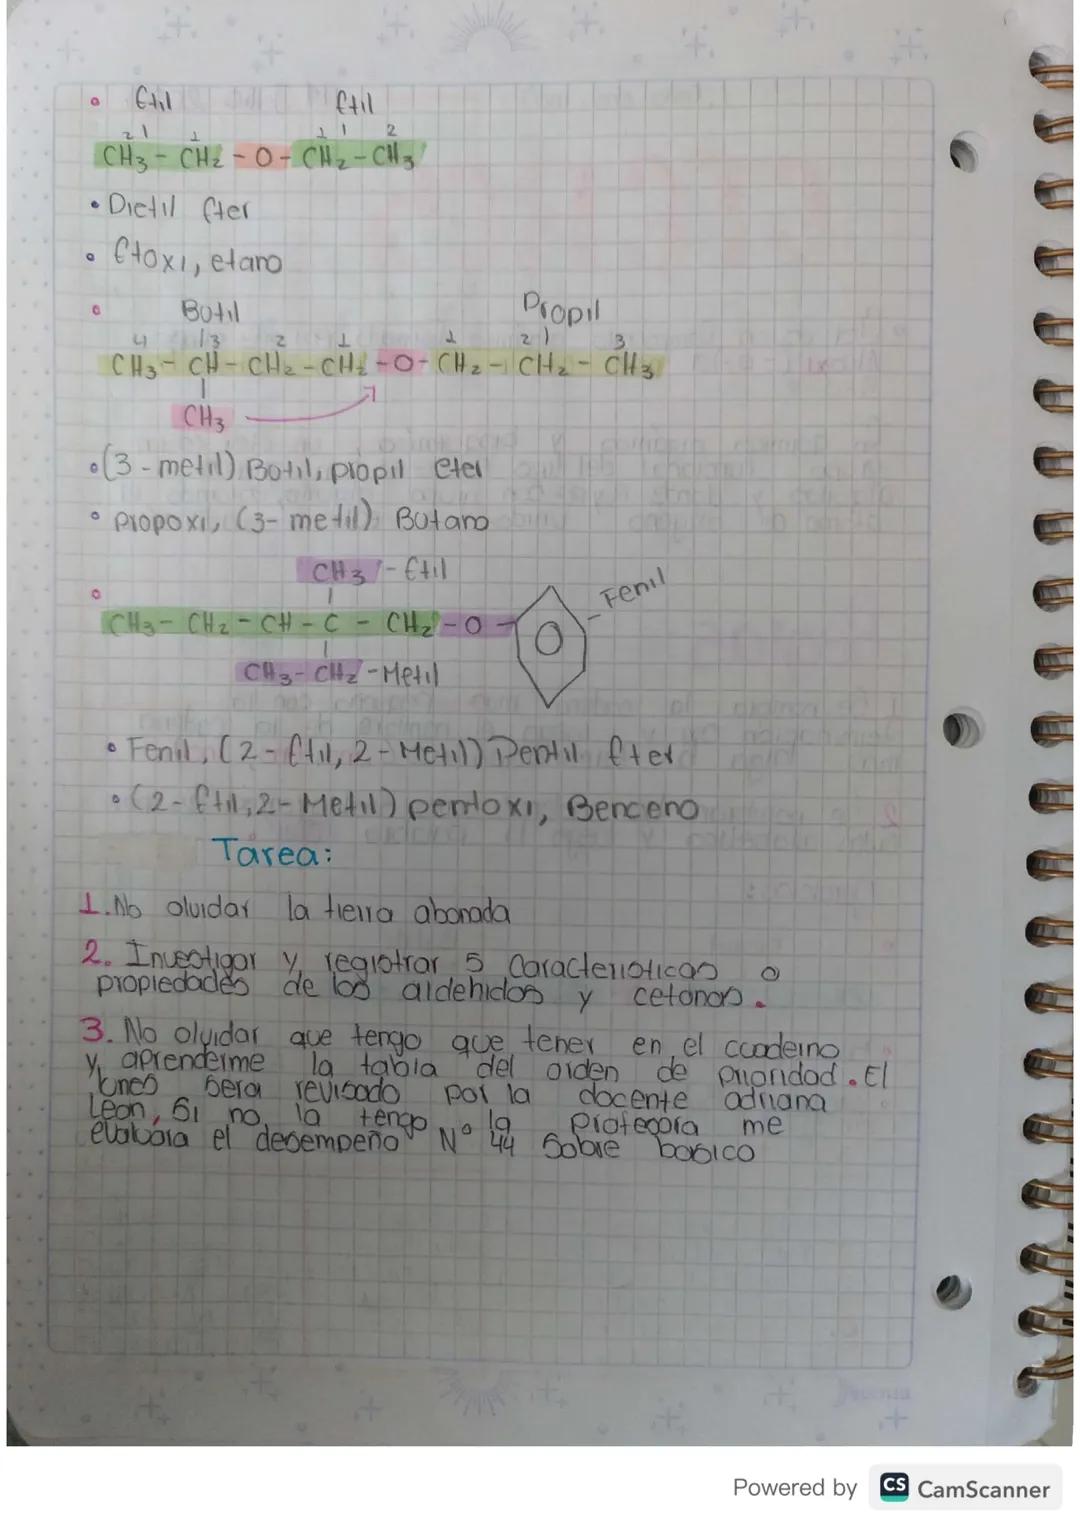 Etil Etil
2 1 1 1 2
CH3 - CH2 - O - CH2 - CH3
• Dietil Eter
• Etoxi, etano
Butil Propil
4 3 2 1 1 2 3
CH3 - CH - CH2 - CH2 - O - CH2 - CH2 - CH3
CH3
• (3 - metil) Butil, propil eter
• propoxi, (3- metil) Butano
CH3 - Etil
Fenil
CH3 - CH2 - CH - C - CH2 - O -
CH3 - CH2 - Metil
• Fenil, (2 - Etil, 2 - Metil) Pentil Eter
• (2- Etil, 2- Metil) pentoxi, Benceno
Tarea:
1. No olvidar la tierra abonada
2. Investigar y registrar 5 caracteristicas o
propiedades de los aldehidos y cetonas.
3. No olvidar que tengo que tener en el cuaderno
y aprenderme la tabla del orden de prioridad. El
lunes sera revisado por la docente adriana
Leon, Si no la tengo la profesora me
evaluara el desempeño N° 44 Sobre basico
Powered by CS CamScanner